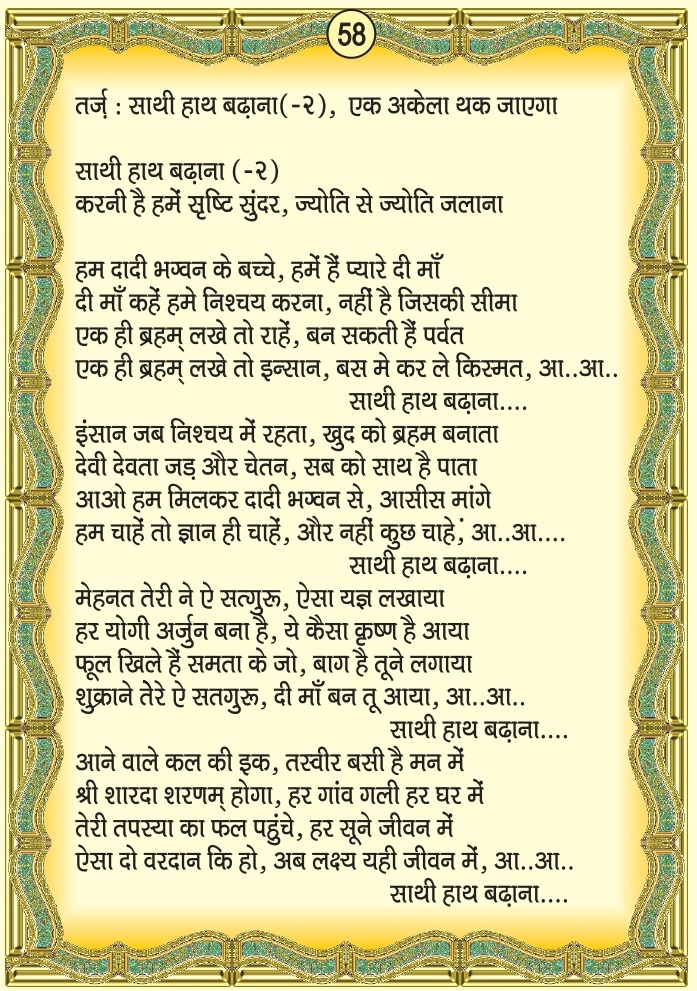 58
तर्ज़ : साथी हाथ बढ़ाना(-२), एक अकेला थक जाएगा
साथी हाथ बढ़ाना (-२)
करनी है हमें सृष्टि सुंदर, ज्योति से ज्योति जलाना
हम दादी भग्वन के बच्चे, हमें हैं प्यारे दी माँ
दी माँ कहें हमे निश्चय करना, नहीं है जिसकी सीमा
एक ही ब्रहम् लखे तो राहें, बन सकती हैं पर्वत
एक ही ब्रहम् लखे तो इन्सान, बस मे कर ले किस्मत, आ..आ..
साथी हाथ बढ़ाना....
इंसान जब निश्चय में रहता, खुद को ब्रहम बनाता
देवी देवता जड़ और चेतन, सब को साथ है पाता
आओ हम मिलकर दादी भग्वन से, आसीस मांगे
हम चाहें तो ज्ञान ही चाहें, और नहीं कुछ चाहें, आ..आ....
साथी हाथ बढ़ाना....
मेहनत तेरी ने ऐ सत्गुरू, ऐसा यज्ञ लखाया
हर योगी अर्जुन बना है, ये कैसा कृष्ण है आया
फूल खिले हैं समता के जो, बाग है तूने लगाया
शुक्राने तेरे ऐ सतगुरू, दी माँ बन तू आया, आ..आ..
साथी हाथ बढ़ाना....
आने वाले कल की इक, तस्वीर बसी है मन में
श्री शारदा शरणम् होगा, हर गांव गली हर घर में
तेरी तपस्या का फल पहुंचे, हर सूने जीवन में
ऐसा दो वरदान कि हो, अब लक्ष्य यही जीवन में, आ..आ..
साथी हाथ बढ़ाना....